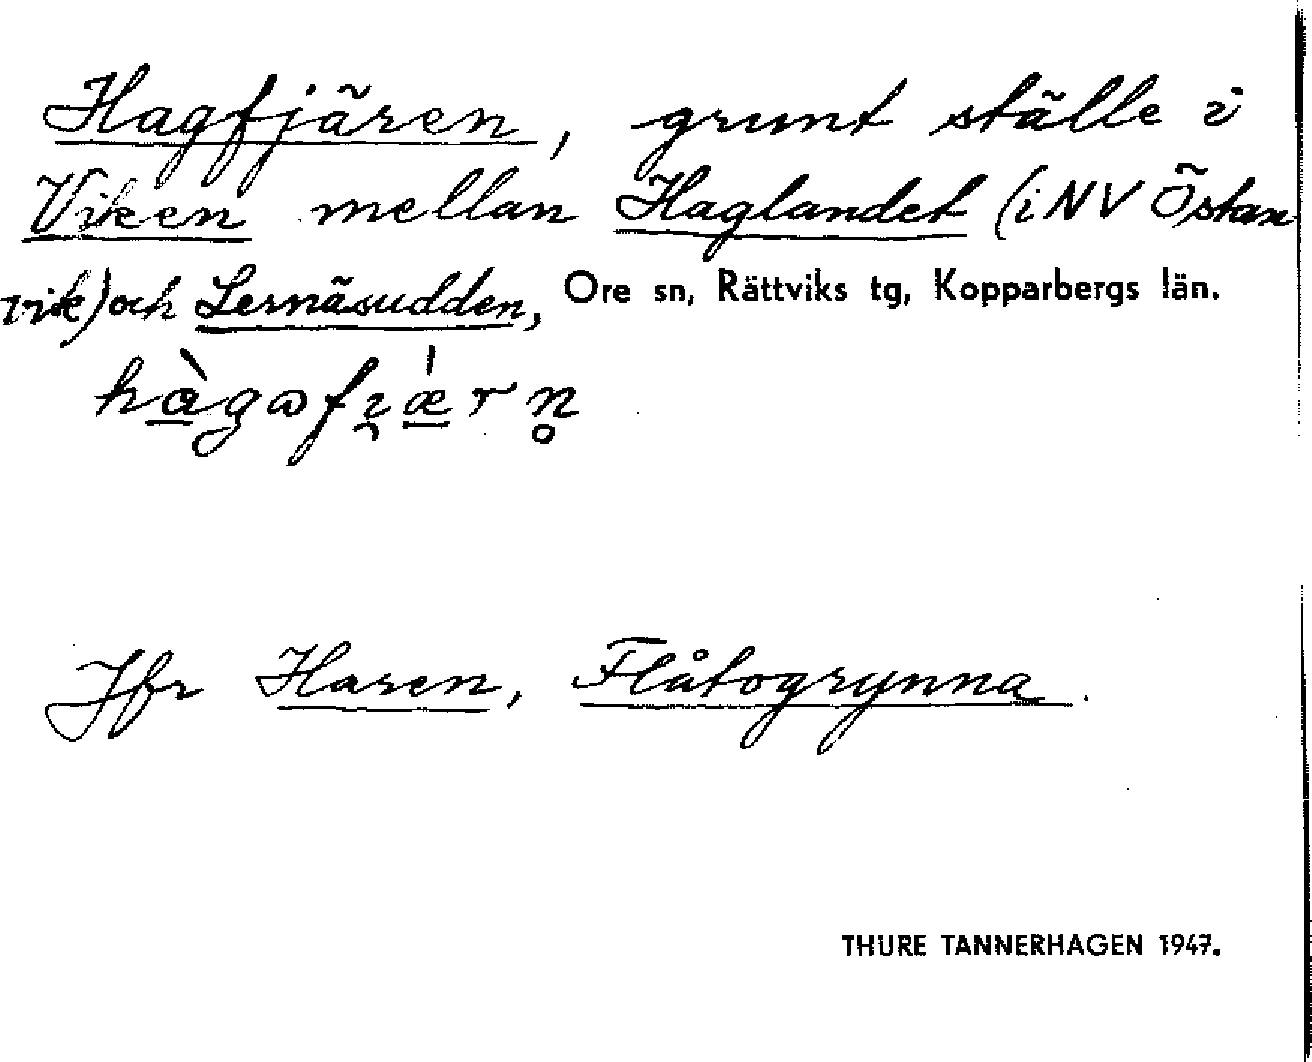 Hagfjären, grunt ställe i
Viken mellan Haglandet (i NV Östan
vik) och Lernäsudden, Ore sn, Rättviks tg, Kopparbergs län.
Jfr Haren, Flåtogrynna.
THURE TANNERHAGEN 1947.